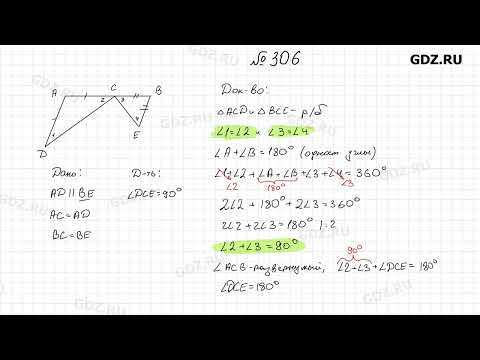 GDZ.RU
№306
A C B
2 3
1 4
D E
Док-во:
△ACD и △BCE – р/б
∠1=∠2 и ∠3=∠4
∠A+∠B=180° (одност. углы)
∠1+∠2+∠A+∠B+∠3+∠4=360°
∠2 180° ∠3
2∠2+180°+2∠3=360°
2∠2+2∠3=180° |:2
∠2+∠3=90°
90°
∠ACB-развернутый, ∠2+∠3+∠DCE=180°
∠DCE=180°
Дано:
AD||BE
AC=AD
BC=BE
Д-ть:
∠DCE=90°